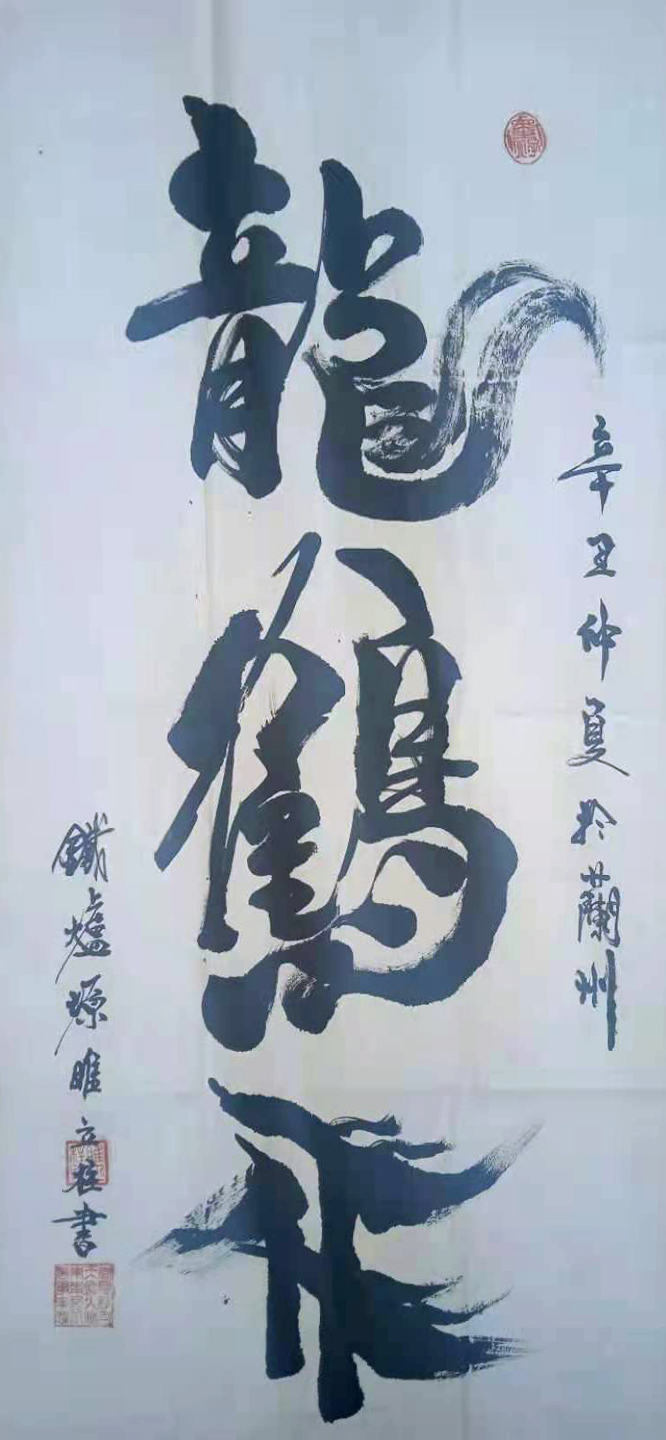 龍鶴飛
辛丑仲夏於蘭州
鐵爐源睢立柱書